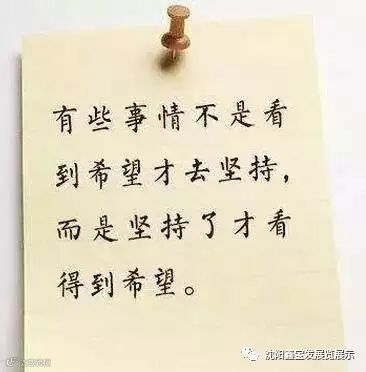 有些事情不是看
到希望才去坚持，
而是坚持了才看
得到希望。
沈阳嘉宝发展览展示